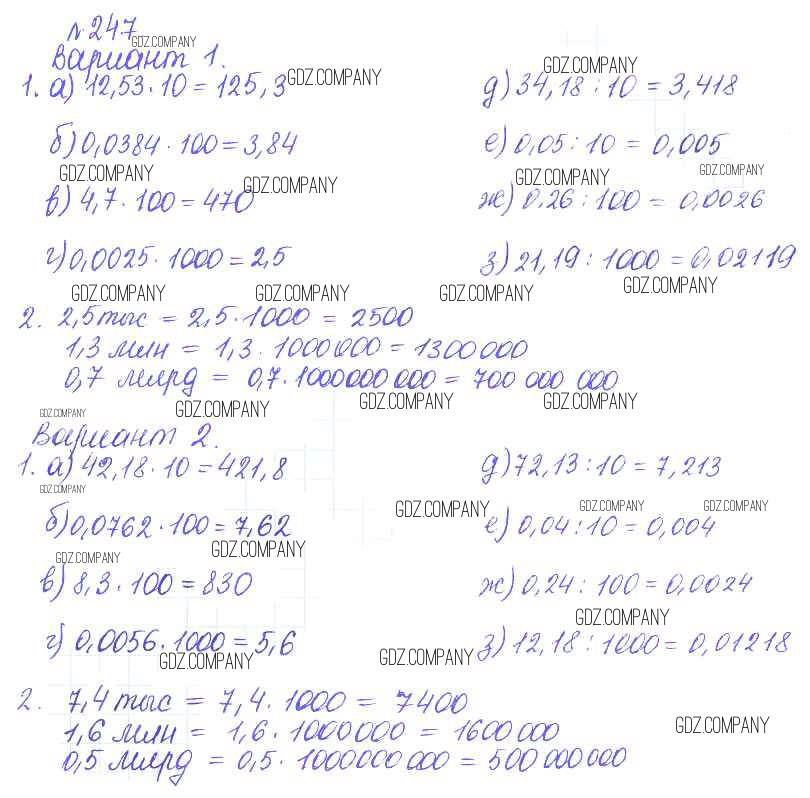 №247
Вариант 1.
1. а) 12,53·10 = 125,3
д) 34,18 : 10 = 3,418
б) 0,0384·100 = 3,84
е) 0,05 : 10 = 0,005
в) 4,7·100 = 470
ж) 0,26 : 100 = 0,0026
г) 0,0025·1000 = 2,5
з) 21,19 : 1000 = 0,02119
2. 2,5 тыс = 2,5·1000 = 2500
1,3 млн = 1,3·1000000 = 1300000
0,7 млрд = 0,7·1000000000 = 700 000 000
Вариант 2.
1. а) 42,18·10 = 421,8
д) 72,13 : 10 = 7,213
б) 0,0762·100 = 7,62
е) 0,04 : 10 = 0,004
в) 8,3·100 = 830
ж) 0,24 : 100 = 0,0024
г) 0,0056·1000 = 5,6
з) 12,18 : 1000 = 0,01218
2. 7,4 тыс = 7,4·1000 = 7400
1,6 млн = 1,6·1000000 = 1600000
0,5 млрд = 0,5·1000000000 = 500 000 000
GDZ.COMPANY